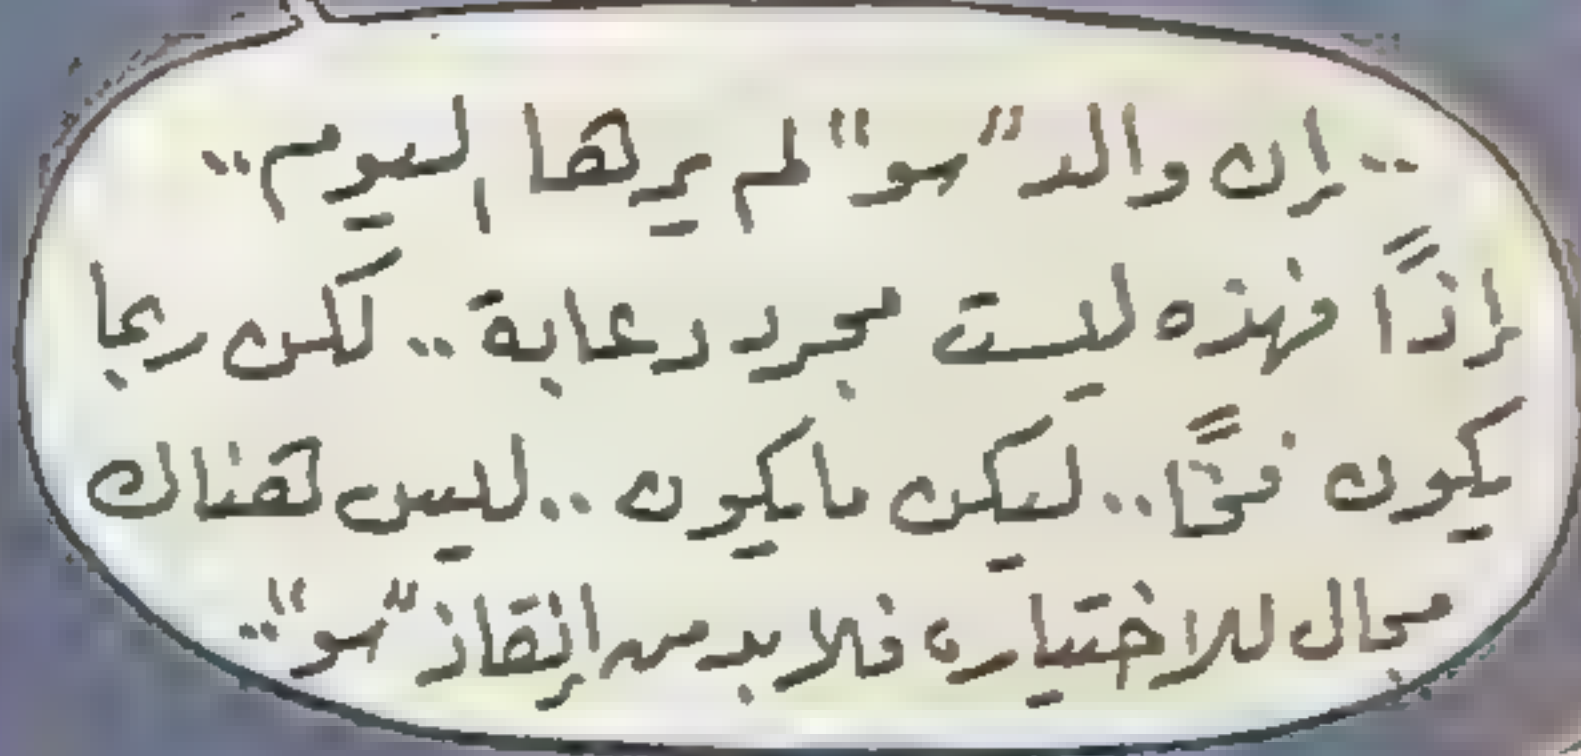 ..إن والد "سو" لم يرها اليوم..
إذًا فهذه ليست مجرد دعابة .. لكن ربما
يكون فخًا.. ليكن ما يكون .. ليس هناك
مجال للاختيار، فلا بد من إنقاذ "سو"..